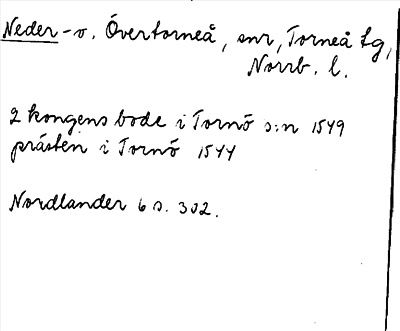 Neder-o. Övertorneå, snr, Torneå tg,
Norrb. l.
2 kongens bode i Tornö s:n 1549
prästen i Tornö 1544
Nordlander 6 s. 302.